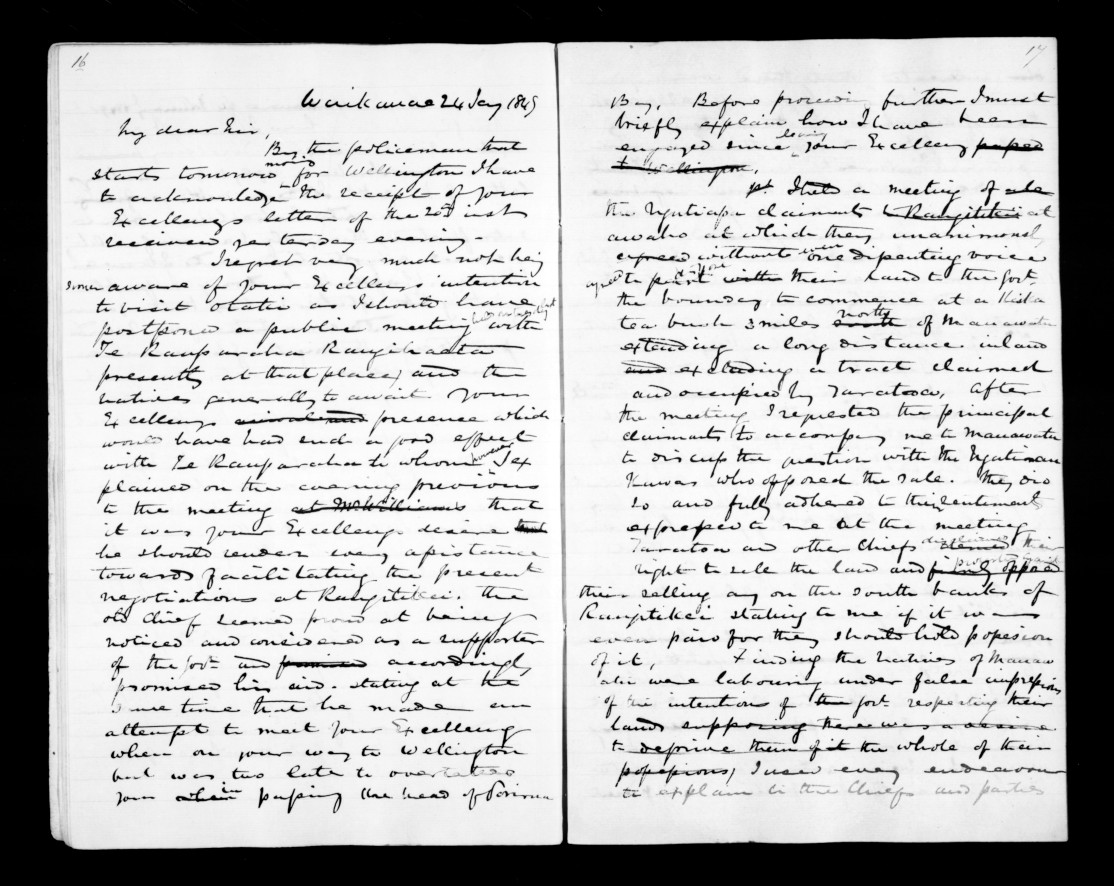 16
Waikanae 24 Jany 1849
My dear Sir,
By the policeman that
starts tomorrow morng for Wellington I have
to acknowledge the receipt of your
Excellency's letter of the 20th inst
received yesterday evening.
I regret very much not being
sooner aware of your Excellency's intention
to visit Otaki as I should have
postponed a public meeting held on tuesday last with
Te Rauparaha Rangihaeata
presently at that place, and the
natives generally to await your
Excellency's presence which
would have had such a good effect
with Te Rauparaha to whom however I ex
plained on the evening previous
to the meeting at McWilliams that
it was your Excellency's desire that
he should render every assistance
towards facilitating the present
negotiations at Rangitikei. The
old Chief seemed proud at being
noticed and considered as a supporter
of the Govt and promised accordingly
promised his aid. stating at the
same time that he made an
attempt to meet your Excellency
when on your way to Wellington
but was too late to overtake
you when in passing the head of Porirua
17
Bay, Before proceeding further I must
briefly explain how I have been
engaged since leaving your Excellency passed
to Wellington.
1st. I held a meeting of all
the Ngatiapa claimants to Rangitikei at
awahou at which they unanimously
agreed without one dissenting voice
agreed to part with dispose their land to the Govt.
the boundary to commence at a Kista
tea bush 3 miles south north of Manawatu
extending a long distance inland
and excluding a tract claimed
and occupied by Taratoa, After
the meeting I requested the principal
claimants to accompany me to Manawatu
to discuss the question with the Ngatirau
kawas who opposed the sale. They did
so and fully adhered to their sentiments
expressed to me at the meeting
Taratoa and other Chiefs denied their
right to sell the land and firmly opposed
their selling any on the south banks of
Rangitikei stating to me if it was
even paid for they should hold possession
of it, Finding the natives of Manaw
atu were labouring under false impressions
of the intentions of the Govt respecting their
lands supposing there was a desire
to deprive them of it the whole of their
possessions, I used every endeavour
to explain to the Chiefs and parties